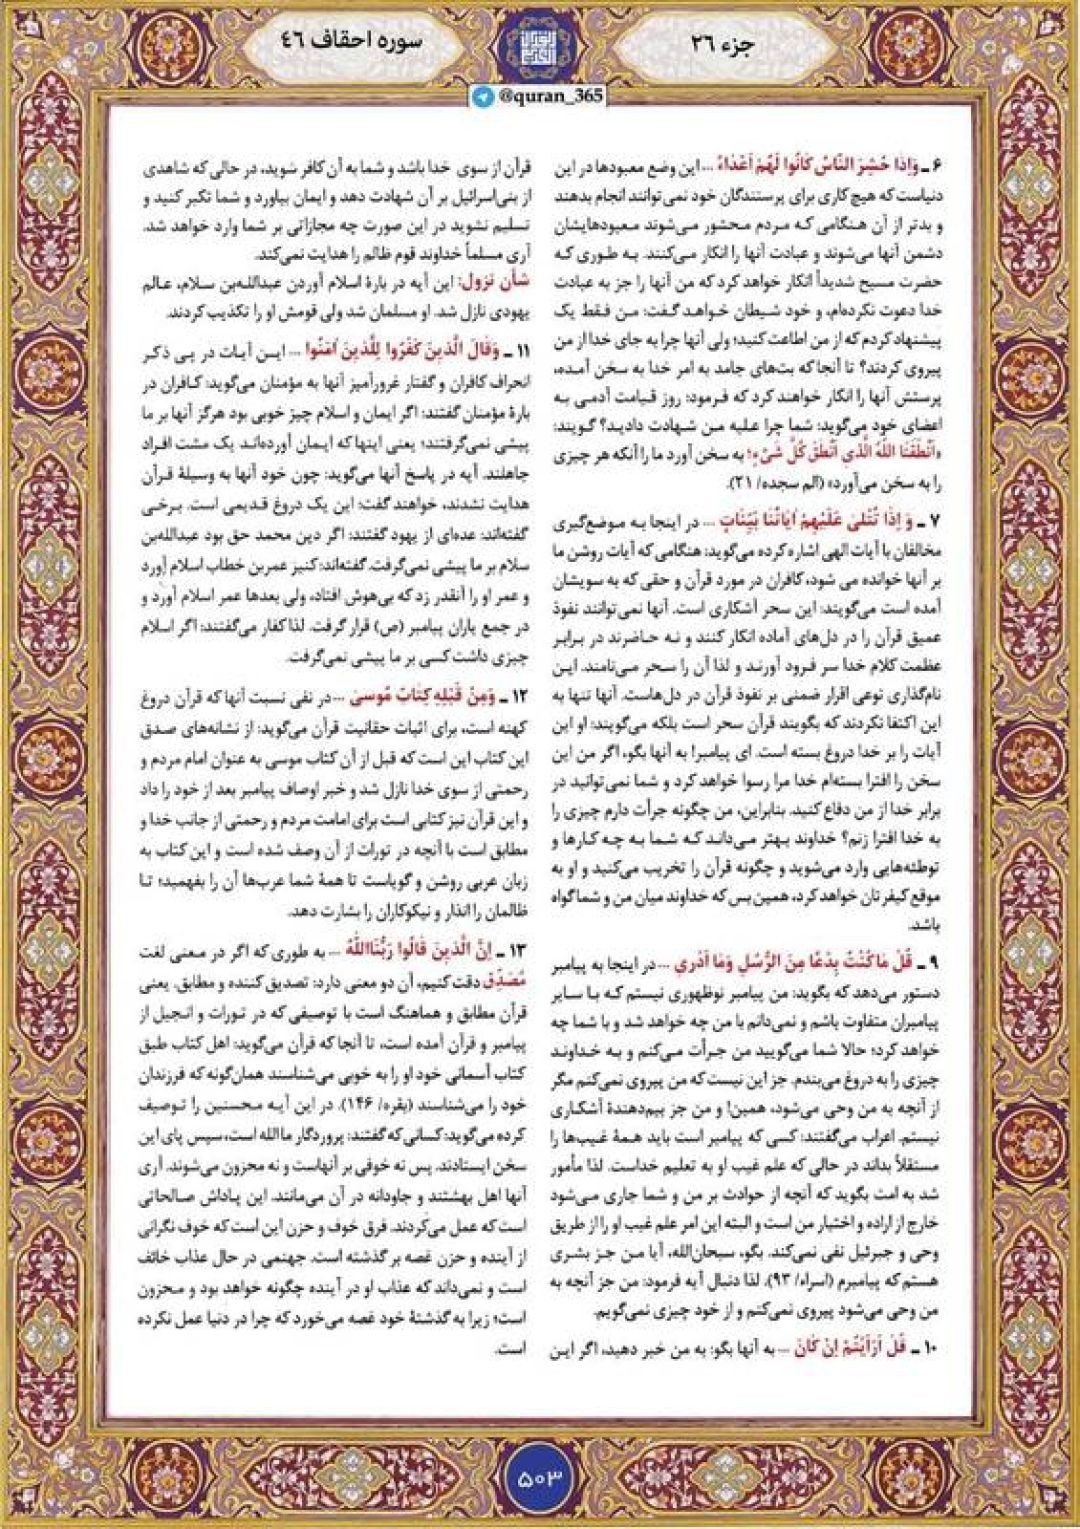 جزء ۲۶
سوره احقاف ۴۶
@quran_365
۶ ـ وَإِذَا حُشِرَ النَّاسُ كَانُوا لَهُمْ أَعْدَاءً ... این وضع معبودها در این
دنیاست که هیچ کاری برای پرستندگان خود نمی‌توانند انجام بدهند
و بدتر از آن هنگامی که مردم محشور می‌شوند معبودهایشان
دشمن آنها می‌شوند و عبادت آنها را انکار می‌کنند. به طوری که
حضرت مسیح شدیداً انکار خواهد کرد که من آنها را جز به عبادت
خدا دعوت نکرده‌ام، و خود شیطان خواهد گفت: من فقط یک
پیشنهاد کردم که از من اطاعت کنید؛ ولی آنها چرا به جای خدا از من
پیروی کردند؟ تا آنجا که بت‌های جامد به امر خدا به سخن آمده،
پرستش آنها را انکار خواهند کرد که فرمود: روز قیامت آدمی به
اعضای خود می‌گوید: شما چرا علیه من شهادت دادید؟ گویند:
«أَنْطَقَنَا اللَّهُ الَّذِي أَنْطَقَ كُلَّ شَيْءٍ؛ به سخن آورد ما را آنکه هر چیزی
را به سخن می‌آورد» (الم سجده/ ۲۱).
۷ ـ وَ إِذَا تُتْلَىٰ عَلَيْهِمْ آيَاتُنَا بَيِّنَاتٍ ... در اینجا به موضع‌گیری
مخالفان با آیات الهی اشاره کرده می‌گوید: هنگامی که آیات روشن ما
بر آنها خوانده می شود، کافران در مورد قرآن و حقی که به سویشان
آمده است می‌گویند: این سحر آشکاری است. آنها نمی‌توانند نفوذ
عمیق قرآن را در دل‌های آماده انکار کنند و نه حاضرند در برابر
عظمت کلام خدا سر فرود آورند و لذا آن را سحر می‌نامند. این
نام‌گذاری نوعی اقرار ضمنی بر نفوذ قرآن در دل‌هاست. آنها تنها به
این اکتفا نکردند که بگویند قرآن سحر است بلکه می‌گویند: او این
آیات را بر خدا دروغ بسته است. ای پیامبر! به آنها بگو، اگر من این
سخن را افترا بسته‌ام خدا مرا رسوا خواهد کرد و شما نمی‌توانید در
برابر خدا از من دفاع کنید. بنابراین، من چگونه جرأت دارم چیزی را
به خدا افترا زنم؟ خداوند بهتر می‌داند که شما به چه کارها و
توطئه‌هایی وارد می‌شوید و چگونه قرآن را تخریب می‌کنید و او به
موقع کیفرتان خواهد کرد، همین بس که خداوند میان من و شما گواه
باشد.
۹ ـ قُلْ مَا كُنْتُ بِدْعًا مِنَ الرُّسُلِ وَمَا أَدْرِي ... در اینجا به پیامبر
دستور می‌دهد که بگوید: من پیامبر نوظهوری نیستم که با سایر
پیامبران متفاوت باشم و نمی‌دانم با من چه خواهد شد و با شما چه
خواهد کرد؛ حالا شما می‌گویید من جرأت می‌کنم و به خداوند
چیزی را به دروغ می‌بندم. جز این نیست که من پیروی نمی‌کنم مگر
از آنچه به من وحی می‌شود، همین! و من جز بیم‌دهندهٔ آشکاری
نیستم. اعراب می‌گفتند: کسی که پیامبر است باید همهٔ غیب‌ها را
مستقلاً بداند در حالی که علم غیب او به تعلیم خداست. لذا مأمور
شد به امت بگوید که آنچه از حوادث بر من و شما جاری می‌شود
خارج از اراده و اختیار من است و البته این امر علم غیب او را از طریق
وحی و جبرئیل نفی نمی‌کند. بگو، سبحان‌الله، آیا من جز بشری
هستم که پیامبرم (اسراء/ ۹۳). لذا دنبال آیه فرمود: من جز آنچه به
من وحی می‌شود پیروی نمی‌کنم و از خود چیزی نمی‌گویم.
۱۰ ـ قُلْ أَرَأَيْتُمْ إِنْ كَانَ ... به آنها بگو: به من خبر دهید، اگر این
قرآن از سوی خدا باشد و شما به آن کافر شوید، در حالی که شاهدی
از بنی‌اسرائیل بر آن شهادت دهد و ایمان بیاورد و شما تکبر کنید و
تسلیم نشوید در این صورت چه مجازاتی بر شما وارد خواهد شد.
آری مسلماً خداوند قوم ظالم را هدایت نمی‌کند.
شأن نزول: این آیه در بارهٔ اسلام آوردن عبدالله‌بن سلام، عالم
یهودی نازل شد. او مسلمان شد ولی قومش او را تکذیب کردند.
۱۱ ـ وَقَالَ الَّذِينَ كَفَرُوا لِلَّذِينَ آمَنُوا ... این آیات در پی ذکر
انحراف کافران و گفتار غرورآمیز آنها به مؤمنان می‌گوید: کافران در
بارهٔ مؤمنان گفتند: اگر ایمان و اسلام چیز خوبی بود هرگز آنها بر ما
پیشی نمی‌گرفتند؛ یعنی اینها که ایمان آورده‌اند یک مشت افراد
جاهلند. آیه در پاسخ آنها می‌گوید: چون خود آنها به وسیلهٔ قرآن
هدایت نشدند، خواهند گفت: این یک دروغ قدیمی است. برخی
گفته‌اند: عده‌ای از یهود گفتند: اگر دین محمد حق بود عبدالله‌بن
سلام بر ما پیشی نمی‌گرفت. گفته‌اند: کنیز عمربن خطاب اسلام آورد
و عمر او را آنقدر زد که بی‌هوش افتاد، ولی بعدها عمر اسلام آورد و
در جمع یاران پیامبر (ص) قرار گرفت. لذا کفار می‌گفتند: اگر اسلام
چیزی داشت کسی بر ما پیشی نمی‌گرفت.
۱۲ ـ وَمِنْ قَبْلِهِ كِتَابُ مُوسَىٰ ... در نفی نسبت آنها که قرآن دروغ
کهنه است، برای اثبات حقانیت قرآن می‌گوید: از نشانه‌های صدق
این کتاب این است که قبل از آن کتاب موسی به عنوان امام مردم و
رحمتی از سوی خدا نازل شد و خبر اوصاف پیامبر بعد از خود را داد
و این قرآن نیز کتابی است برای امامت مردم و رحمتی از جانب خدا و
مطابق است با آنچه در تورات از آن وصف شده است و این کتاب به
زبان عربی روشن و گویاست تا همهٔ شما عرب‌ها آن را بفهمید؛ تا
ظالمان را انذار و نیکوکاران را بشارت دهد.
۱۳ ـ إِنَّ الَّذِينَ قَالُوا رَبُّنَا اللَّهُ ... به طوری که اگر در معنی لغت
مُصَدِّق دقت کنیم، آن دو معنی دارد: تصدیق کننده و مطابق. یعنی
قرآن مطابق و هماهنگ است با توصیفی که در تورات و انجیل از
پیامبر و قرآن آمده است، تا آنجا که قرآن می‌گوید: اهل کتاب طبق
کتاب آسمانی خود او را به خوبی می‌شناسند همان‌گونه که فرزندان
خود را می‌شناسند (بقره/ ۱۴۶). در این آیه محسنین را توصیف
کرده می‌گوید: کسانی که گفتند: پروردگار ما الله است، سپس پای این
سخن ایستادند. پس نه خوفی بر آنهاست و نه محزون می‌شوند. آری
آنها اهل بهشتند و جاودانه در آن می‌مانند. این پاداش صالحاتی
است که عمل می‌کردند. فرق خوف و حزن این است که خوف نگرانی
از آینده و حزن غصه بر گذشته است. جهنمی در حال عذاب خائف
است و نمی‌داند که عذاب او در آینده چگونه خواهد بود و محزون
است؛ زیرا به گذشتهٔ خود غصه می‌خورد که چرا در دنیا عمل نکرده
است.
۵۰۳